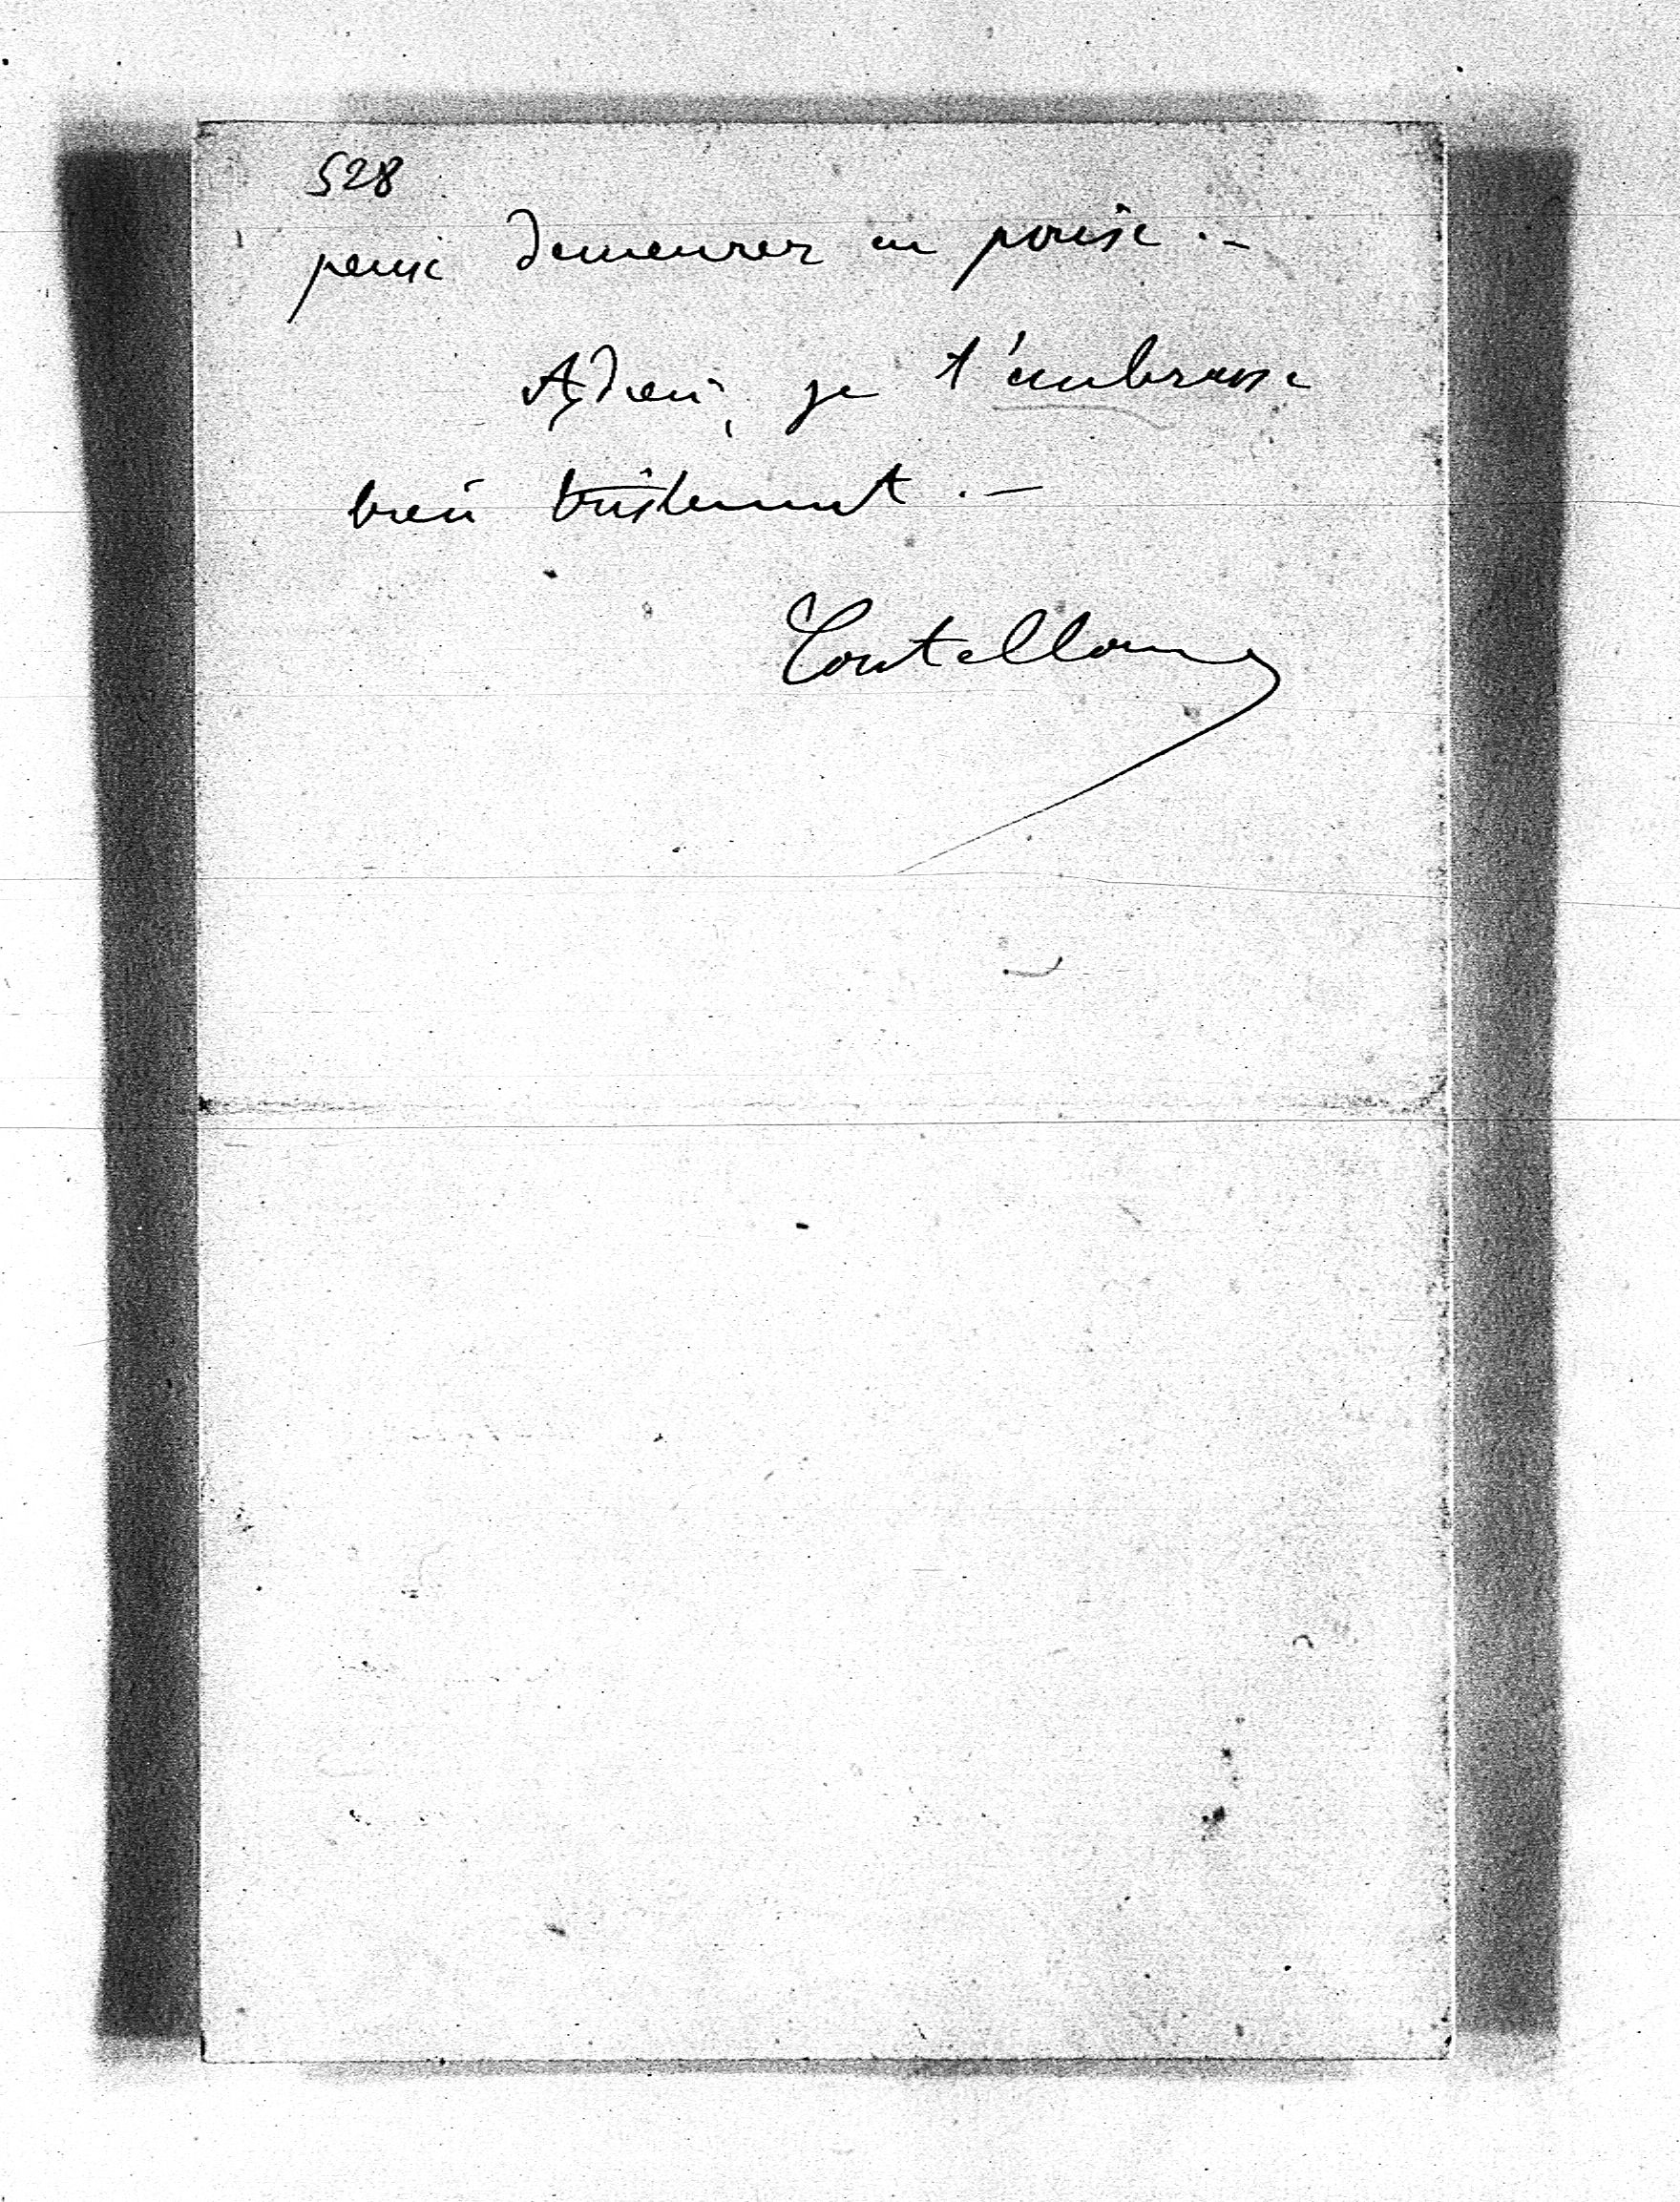 528
puisse demeurer en poésie. —
Adieu, je t'embrasse
bien tristement. —